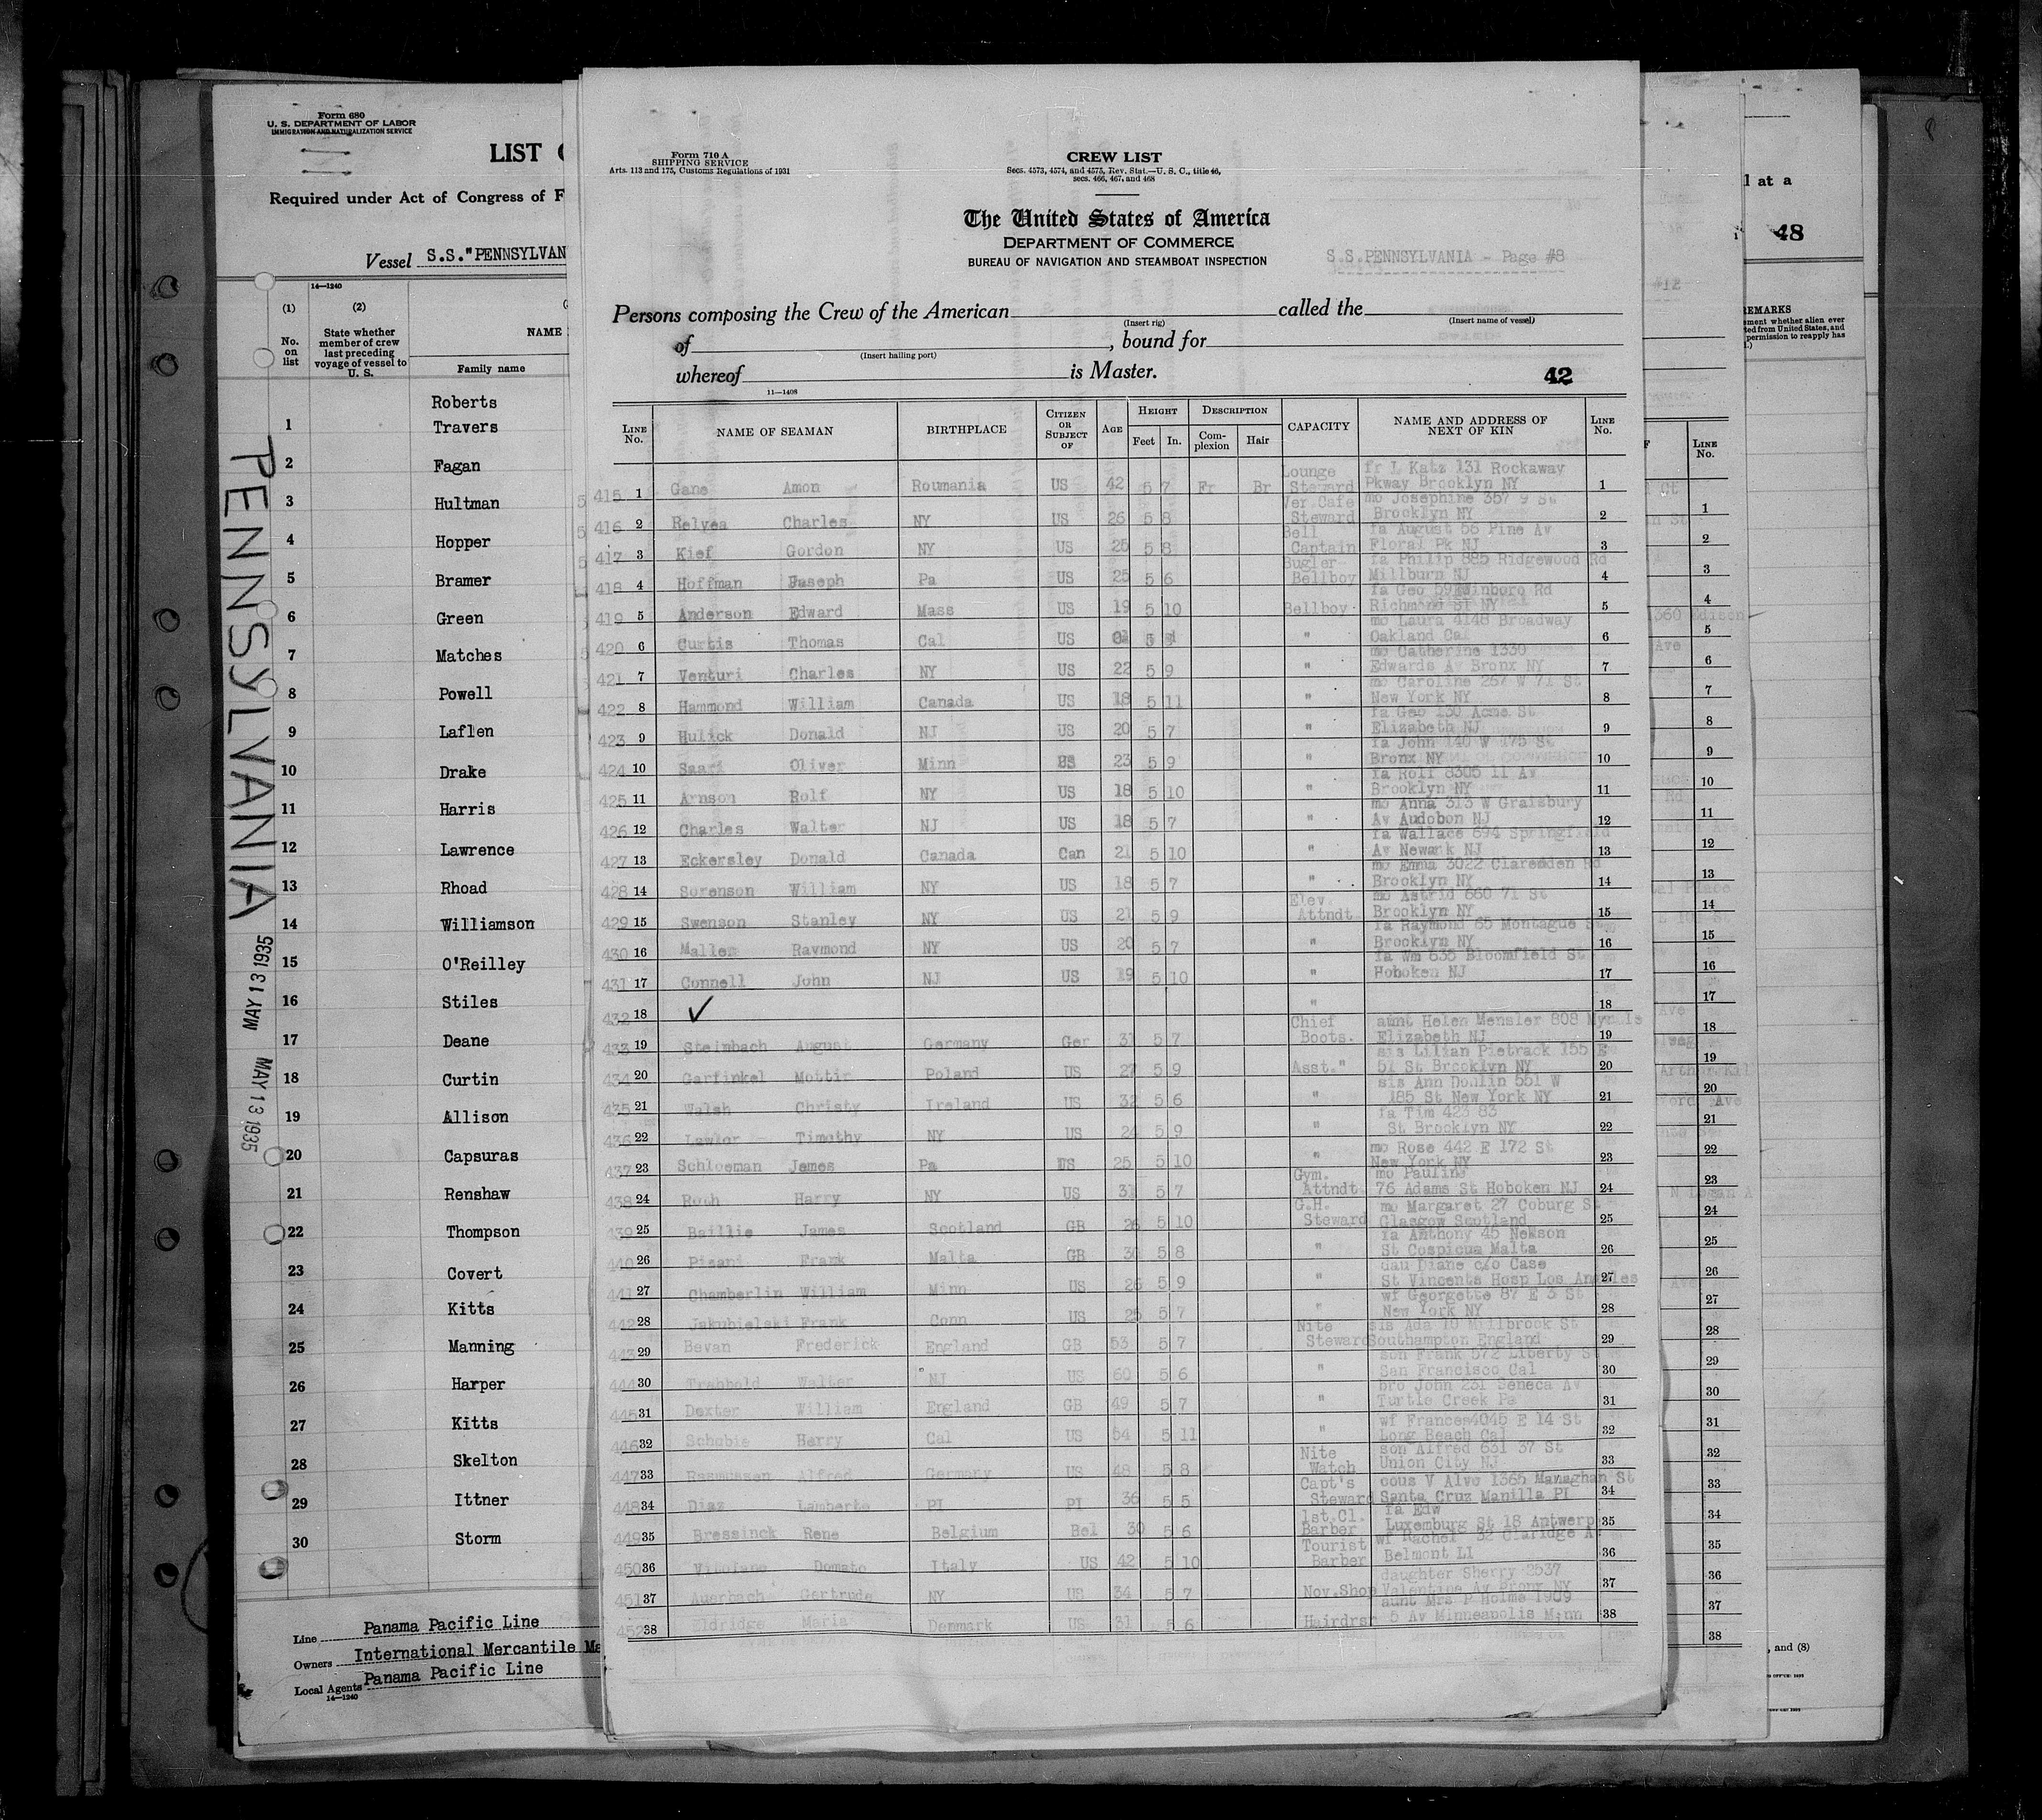 Form 680
U. S. DEPARTMENT OF LABOR
IMMIGRATION AND NATURALIZATION SERVICE
LIST
Required under Act of Congress of F
Vessel S.S."PENNSYLVAN
14—1240
(1) (2)
No. on list
State whether member of crew last preceding voyage of vessel to U. S.
NAME
Family name
Roberts
1 Travers
2 Fagan
3 Hultman
4 Hopper
5 Bramer
6 Green
7 Matches
8 Powell
9 Laflen
10 Drake
11 Harris
12 Lawrence
13 Rhoad
14 Williamson
15 O'Reilley
16 Stiles
17 Deane
18 Curtin
19 Allison
20 Capsuras
21 Renshaw
22 Thompson
23 Covert
24 Kitts
25 Manning
26 Harper
27 Kitts
28 Skelton
29 Ittner
30 Storm
Line Panama Pacific Line
Owners International Mercantile Ma
Local Agents Panama Pacific Line
14—1240
PENNSYLVANIA
MAY 13 1935
MAY 13 1935
Form 710 A
SHIPPING SERVICE
Arts. 113 and 175, Customs Regulations of 1931
CREW LIST
Secs. 4573, 4574, and 4575, Rev. Stat.—U. S. C., title 46,
secs. 466, 467, and 468
The United States of America
DEPARTMENT OF COMMERCE
BUREAU OF NAVIGATION AND STEAMBOAT INSPECTION
S.S.PENNSYLVANIA - Page #8
Persons composing the Crew of the American called the
(Insert rig) (Insert name of vessel)
of , bound for
(Insert hailing port)
whereof is Master.
11—1408
42
LINE No. NAME OF SEAMAN BIRTHPLACE CITIZEN OR SUBJECT OF AGE HEIGHT Feet In. DESCRIPTION Complexion Hair CAPACITY NAME AND ADDRESS OF NEXT OF KIN LINE No.
415 1 Gane Amon Roumania US 42 5 7 Fr Br Lounge Steward fr L Katz 131 Rockaway Pkway Brooklyn NY 1
416 2 Relyea Charles NY US 26 5 8 Ver Cafe Steward mo Josephine 357 9 St Brooklyn NY 2
417 3 Kief Gordon NY US 25 5 8 Bell Captain fa August 56 Pine Av Floral Pk NJ 3
418 4 Hoffman Joseph Pa US 25 5 6 Bugler Bellboy fa Philip 885 Ridgewood Rd Millburn NJ 4
419 5 Anderson Edward Mass US 19 5 10 Bellboy fa Geo Edinboro Rd Richmond NY 5
420 6 Curtis Thomas Cal US 5 " mo Laura 4148 Broadway Oakland Cal 6
421 7 Venturi Charles NY US 22 5 9 " mo Catherine 1330 Edwards Av Bronx NY 7
422 8 Hammond William Canada US 18 5 11 " mo Caroline 267 W 71 St New York NY 8
423 9 Hulick Donald NJ US 20 5 7 " fa Geo 130 Acme St Elizabeth NJ 9
424 10 Saari Oliver Minn US 23 5 9 " fa John 140 W 175 St Bronx NY 10
425 11 Arnson Rolf NY US 18 5 10 " fa Rolf 8305 11 Av Brooklyn NY 11
426 12 Charles Walter NJ US 18 5 7 " mo Anna 313 W Graisbury Av Audobon NJ 12
427 13 Eckersley Donald Canada Can 21 5 10 " fa Wallace 694 Springfield Av Newark NJ 13
428 14 Sorenson William NY US 18 5 7 " mo Emma 3022 Claremden Rd Brooklyn NY 14
429 15 Swenson Stanley NY US 21 5 9 Elev. Attndt mo Astrid 660 71 St Brooklyn NY 15
430 16 Mallen Raymond NY US 20 5 7 " fa Raymond 65 Montague St Brooklyn NY 16
431 17 Connell John NJ US 19 5 10 " fa Wm 635 Bloomfield St Hoboken NJ 17
432 18 ✓ " 18
433 19 Steinbach August Germany Ger 31 5 7 Chief Boots. aunt Helen Mensler 808 Myrtle Elizabeth NJ 19
434 20 Garfinkel Mottir Poland US 27 5 9 Asst." sis Lilian Pietrack 155 E 51 St Brooklyn NY 20
435 21 Walsh Christy Ireland US 32 5 6 " sis Ann Donlin 551 W 185 St New York NY 21
436 22 Lawlor Timothy NY US 24 5 9 " fa Tim 423 83 St Brooklyn NY 22
437 23 Schloeman James Pa US 25 5 10 " mo Rose 442 E 172 St New York NY 23
438 24 Roch Harry NY US 31 5 7 Gym. Attndt mo Pauline 76 Adams St Hoboken NJ 24
439 25 Baillie James Scotland GB 26 5 10 G.H. Steward mo Margaret 27 Coburg St Glasgow Scotland 25
440 26 Pisani Frank Malta GB 30 5 8 " fa Anthony 45 Nelson St Cospicua Malta 26
441 27 Chamberlin William Minn US 26 5 9 " dau Diane c/o Case St Vincents Hosp Los Angeles 27
442 28 Jakubielski Frank Conn US 25 5 7 " wf Georgette 87 E 3 St New York NY 28
443 29 Bevan Frederick England GB 53 5 7 Nite Steward sis Ada 10 Millbrook St Southampton England 29
444 30 Trabbold Walter NJ US 60 5 6 " son Frank 572 Liberty St San Francisco Cal 30
445 31 Dexter William England GB 49 5 7 " bro John 231 Seneca Av Turtle Creek Pa 31
446 32 Schobie Harry Cal US 54 5 11 " wf Frances 4045 E 14 St Long Beach Cal 32
447 33 Rasmussen Alfred Germany US 48 5 8 Nite Watch son Alfred 631 37 St Union City NJ 33
448 34 Diaz Lamberto PI PI 36 5 5 Capt's Steward cous V Alvo 1365 Managhan St Santa Cruz Manilla PI 34
449 35 Bressinck Rene Belgium Bel 30 5 6 1st.Cl. Barber fa Edw Luxemburg St 18 Antwerp 35
450 36 Donato Italy US 42 5 10 Tourist Barber wf Rachel 82 Claridge Av Belmont LI 36
451 37 Auerbach Gertrude NY US 34 5 7 Nov.Shop daughter Sherry 2537 Valentine Av Bronx NY 37
452 38 Eldridge Maria Denmark US 31 5 6 Hairdrsr aunt Mrs P Holms 1909 5 Av Minneapolis Minn 38
l at a
48
REMARKS
, and (8)
LINE No.